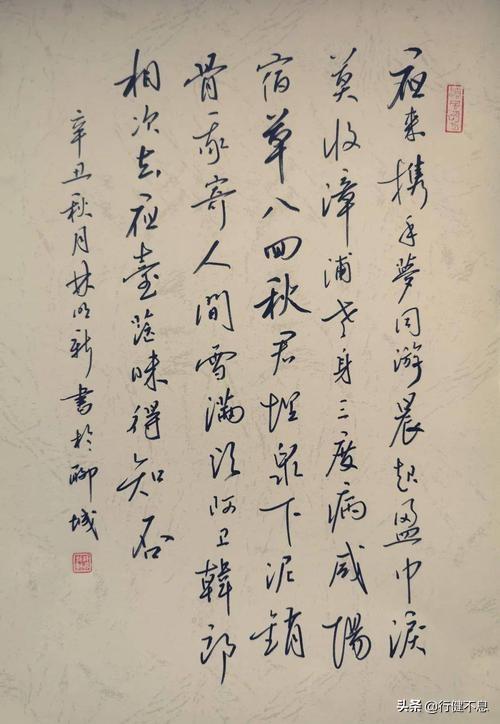 夜来携手夢同游晨起盈巾淚
莫收漳浦老身三度病咸陽
宿草八回秋君埋泉下泥銷
骨我寄人間雪滿头阿卫韓郎
相次去夜臺茫昧得知否
辛丑秋月林新書於聊城
头条@行健不息